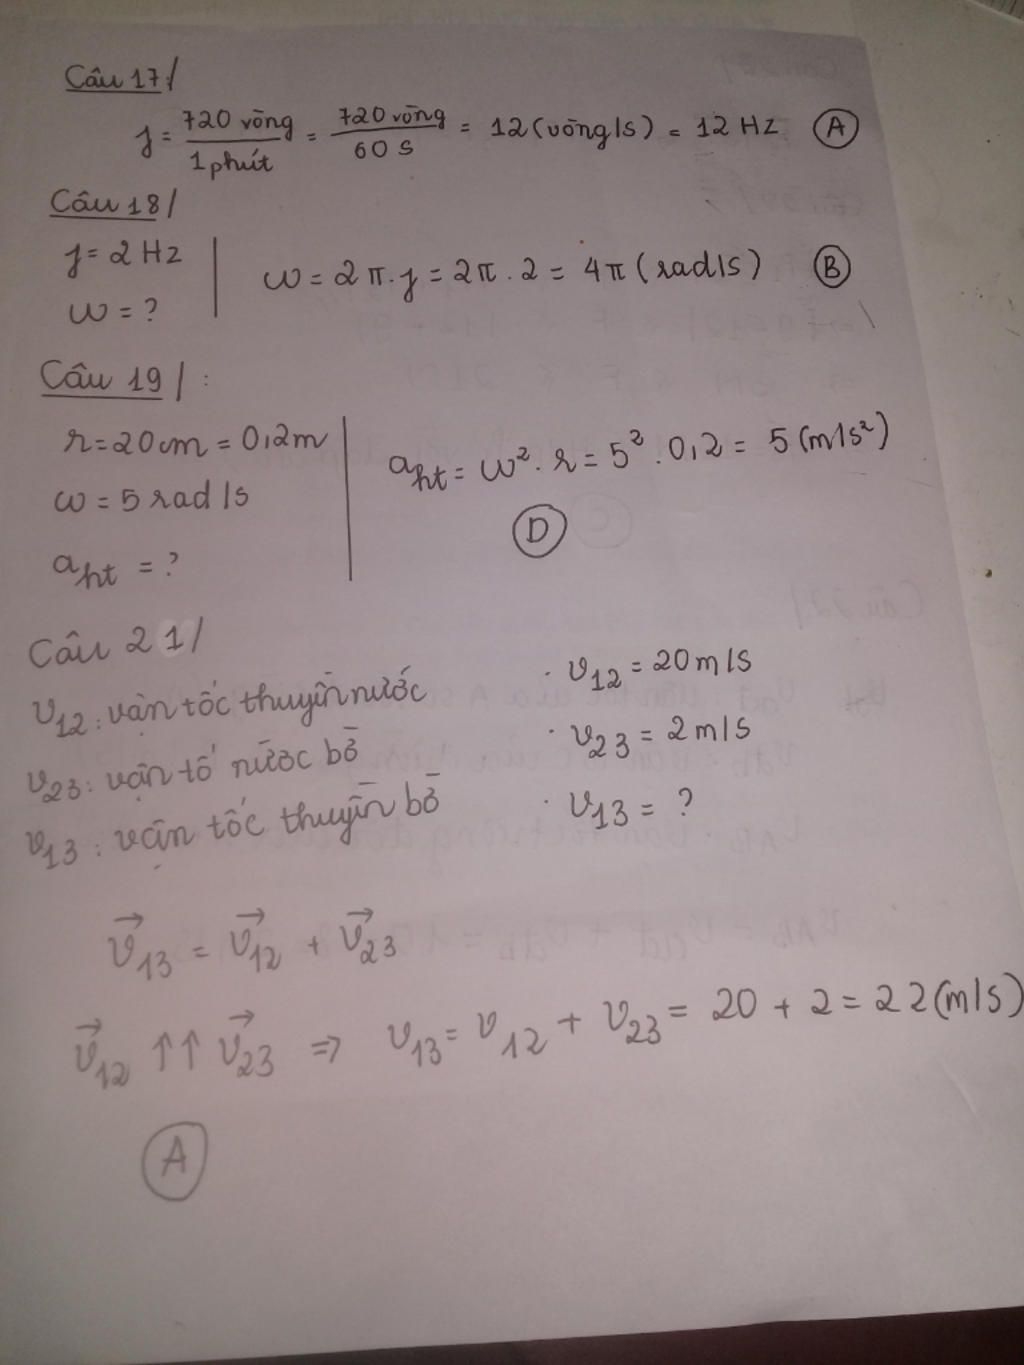 Câu 17/
f = 720 vòng / 1 phút = 720 vòng / 60 s = 12 (vòng/s) = 12 Hz (A)
Câu 18/
f = 2 Hz
ω = ?
ω = 2π.f = 2π.2 = 4π (rad/s) (B)
Câu 19/:
r = 20cm = 0,2m
ω = 5 rad/s
aht = ?
aht = ω². r = 5². 0,2 = 5 (m/s²)
(D)
Câu 21/
v12: vận tốc thuyền nước · v12 = 20 m/s
v23: vận tố nước bờ · v23 = 2 m/s
v13: vận tốc thuyền bờ · v13 = ?
v⃗13 = v⃗12 + v⃗23
v⃗12 ↑↑ v⃗23 => v13 = v12 + v23 = 20 + 2 = 22 (m/s)
(A)